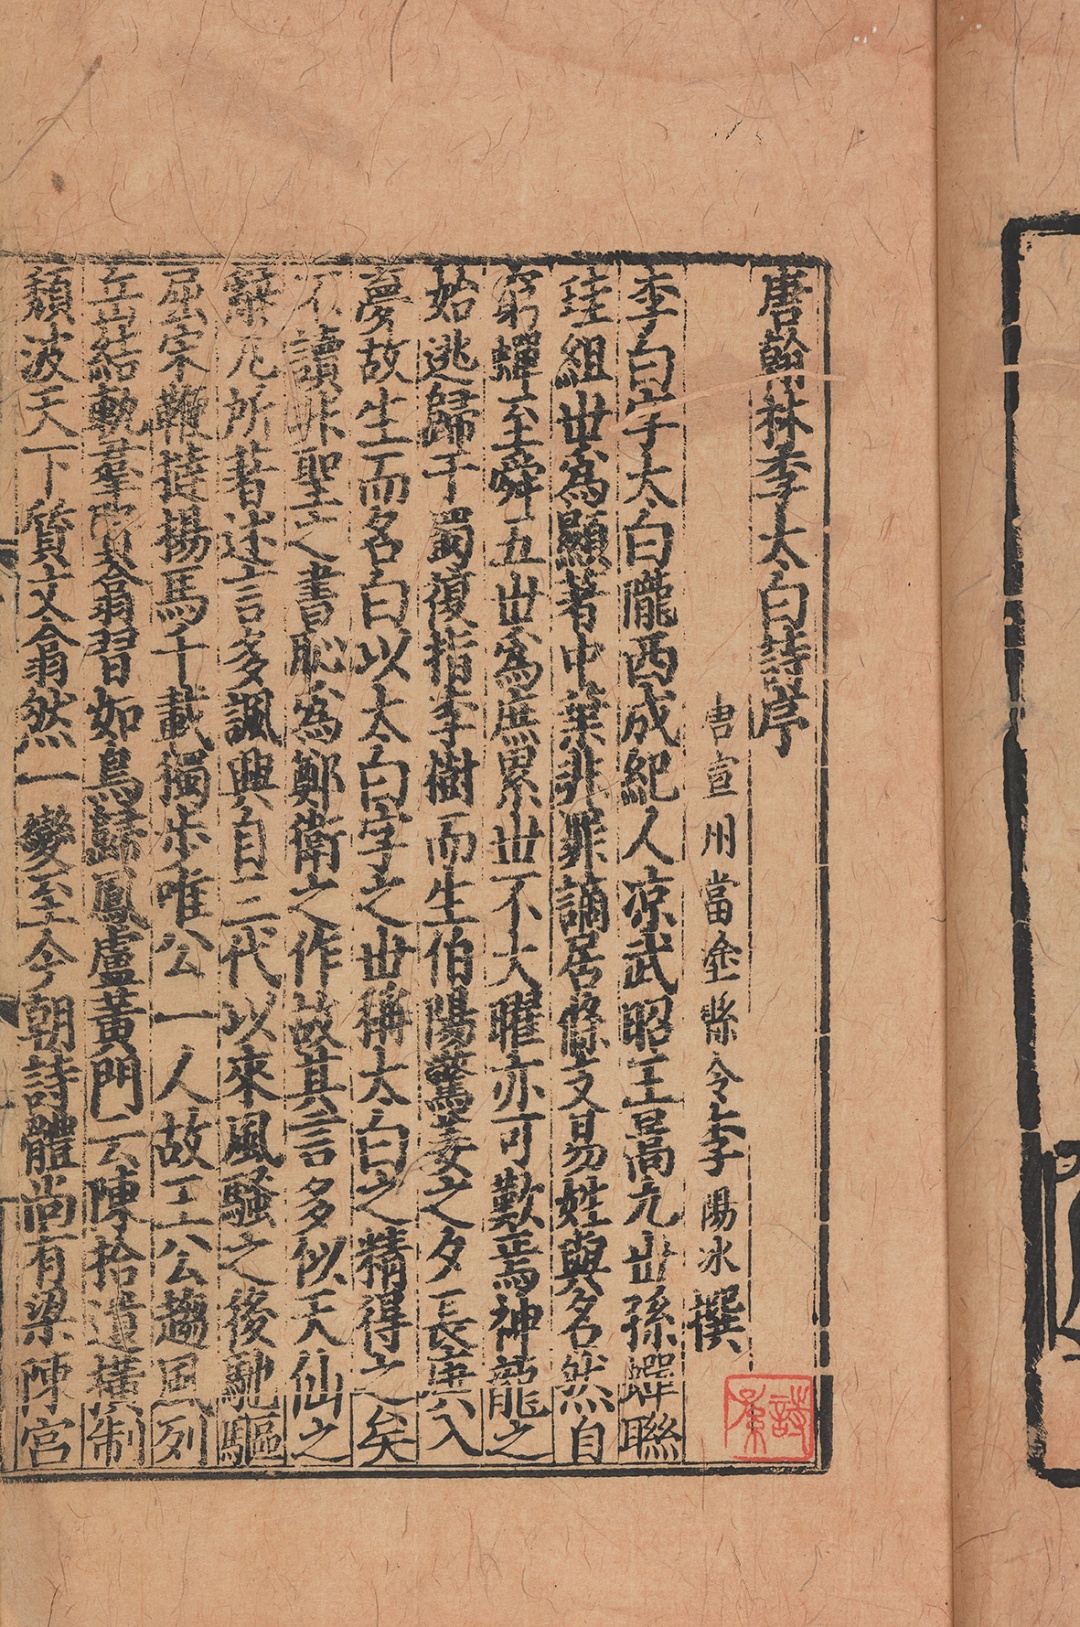 唐翰林李太白詩序
唐宣州當塗縣令李陽冰撰
李白字太白隴西成紀人凉武昭王暠九丗孫蟬聯
珪組丗爲顯著中葉非罪謫居條支易姓與名然自
窮蟬至舜五丗爲庶累丗不大曜亦可歎焉神龍之
始逃歸于蜀復指李樹而生伯陽驚姜之夕長庚入
夢故生而名白以太白字之丗稱太白之精得之矣
不讀非聖之書恥爲鄭衛之作故其言多似天仙之
辭凡所著述言多諷興自三代以來風騷之後馳驅
屈宋鞭撻揚馬千載獨步唯公一人故王公趨風列
岳結軌羣賢翕習如鳥歸鳳盧黃門云陳拾遺橫制
頽波天下質文翕然一變至今朝詩體尚有梁陳宮
詩集